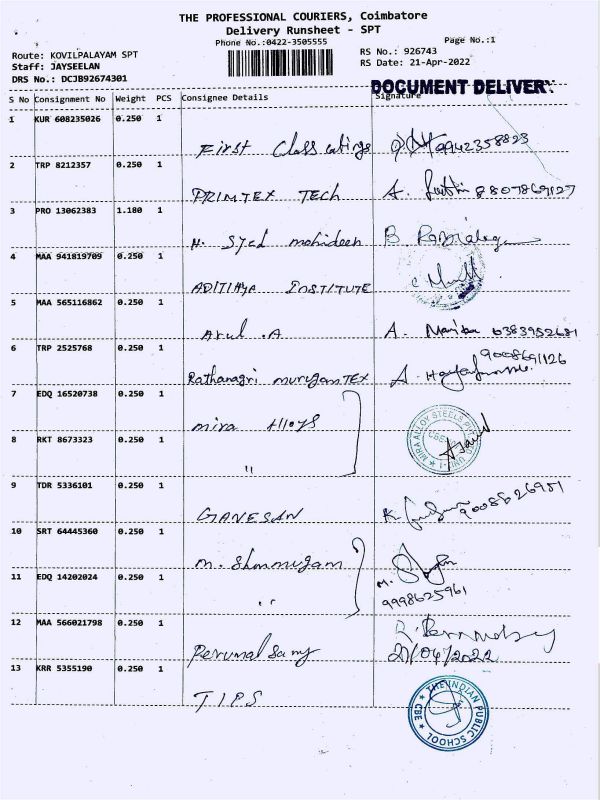 THE PROFESSIONAL COURIERS, Coimbatore
Delivery Runsheet - SPT
Phone No.:0422-3505555
Page No.:1
Route: KOVILPALAYAM SPT
RS No.: 926743
Staff: JAYSEELAN
RS Date: 21-Apr-2022
DRS No.: DCJB92674301
DOCUMENT DELIVERY
S No Consignment No Weight PCS Consignee Details Signature
1 KUR 608235026 0.250 1
First Class 9942358823
2 TRP 8212357 0.250 1
PRIMTEX Tech A. 8807869127
3 PRO 13062383 1.180 1
H. Syed mohideen B
4 MAA 941819709 0.250 1
ADITHYA INSTITUTE
5 MAA 565116862 0.250 1
Arul .A A. 6383952681
6 TRP 2525768 0.250 1
9008691126
Rathanagri murugan TEX A.
7 EDQ 16520738 0.250 1
mira Alloys
MIRA ALLOY STEELS
8 RKT 8673323 0.250 1
"
9 TDR 5336101 0.250 1
GANESAN K.
10 SRT 64445360 0.250 1
m. Shanmugam M.
11 EDQ 14202024 0.250 1
" 9998625961
12 MAA 566021798 0.250 1
Perumal Samy 21/04/2022
13 KRR 5355190 0.250 1
TIPS
THE INDIAN PUBLIC SCHOOL
CBE